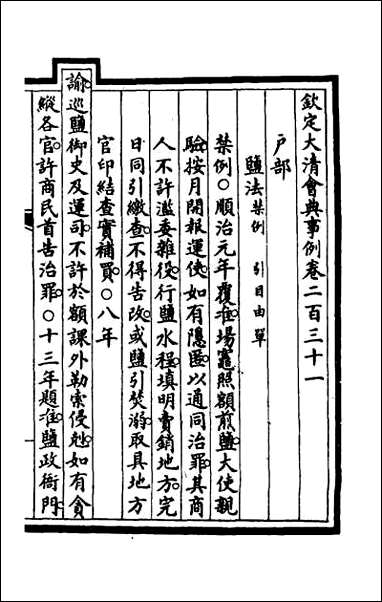 欽定大清會典事例卷二百三十一
戶部
鹽法禁例 引目由單
禁例○順治元年覆准場竈照額煎鹽大使親
驗按月開報運使如有隱匿以通同治罪其商
人不許濫委雜役行鹽水程填明賣銷地方完
日同引繳查不得告改或鹽引焚溺取具地方
官印結查實補買○八年
諭巡鹽御史及運司不許於額課外勒索侵尅如有貪
縱各官許商民首告治罪○十三年題准鹽政衙門